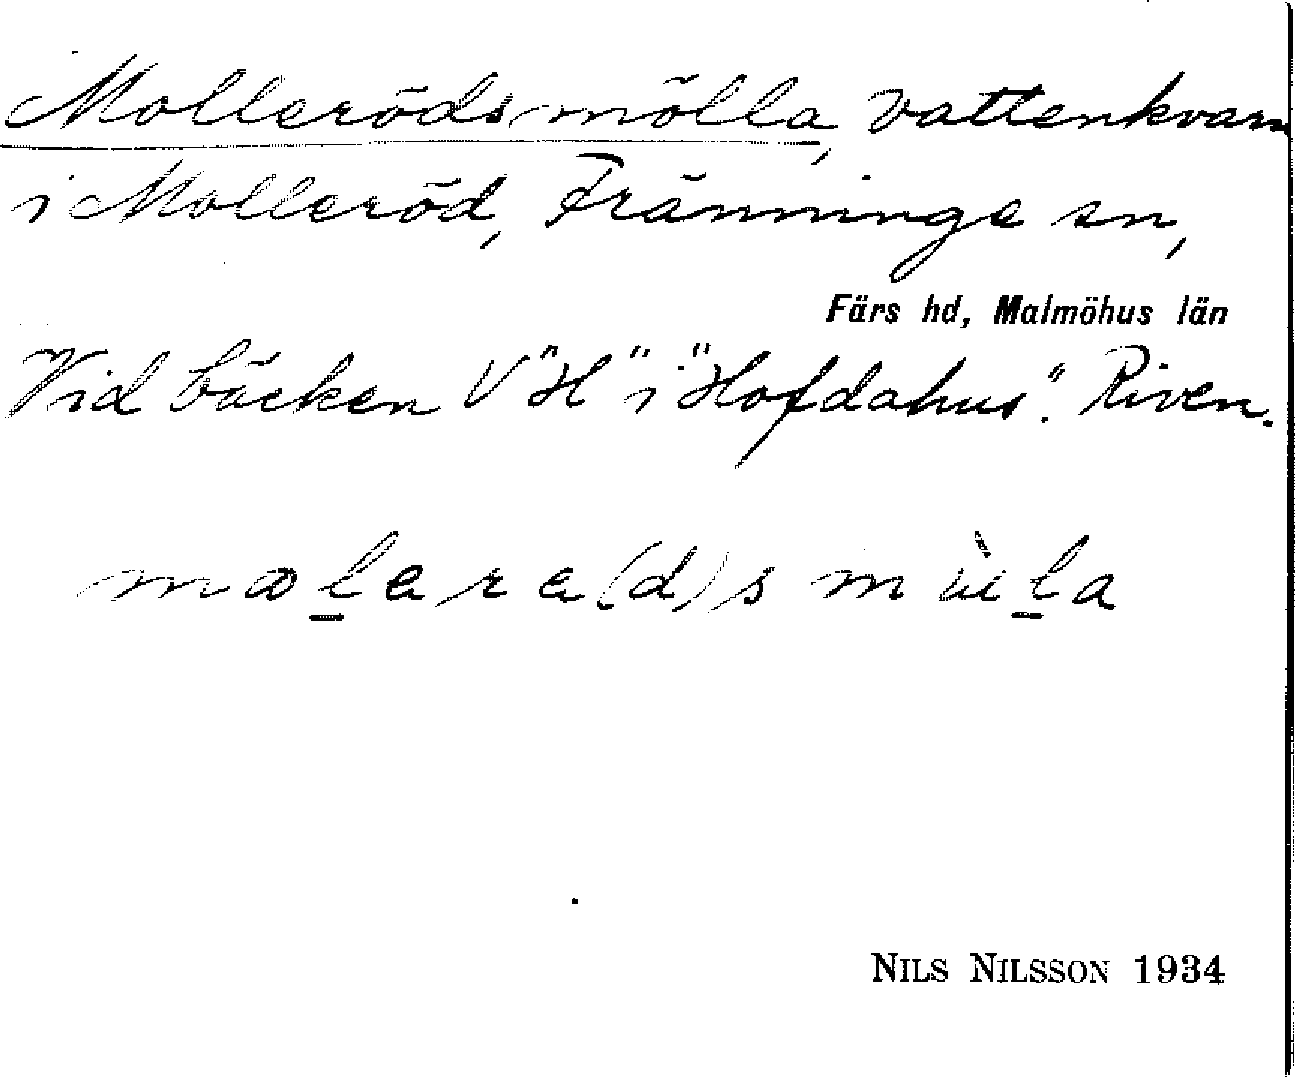 Molleröds mölla, vattenkvarn
i Molleröd, Fränninge sn,
Färs hd, Malmöhus län
Vid bäcken V "H" i "Hofdahus". Riven.
NILS NILSSON 1934